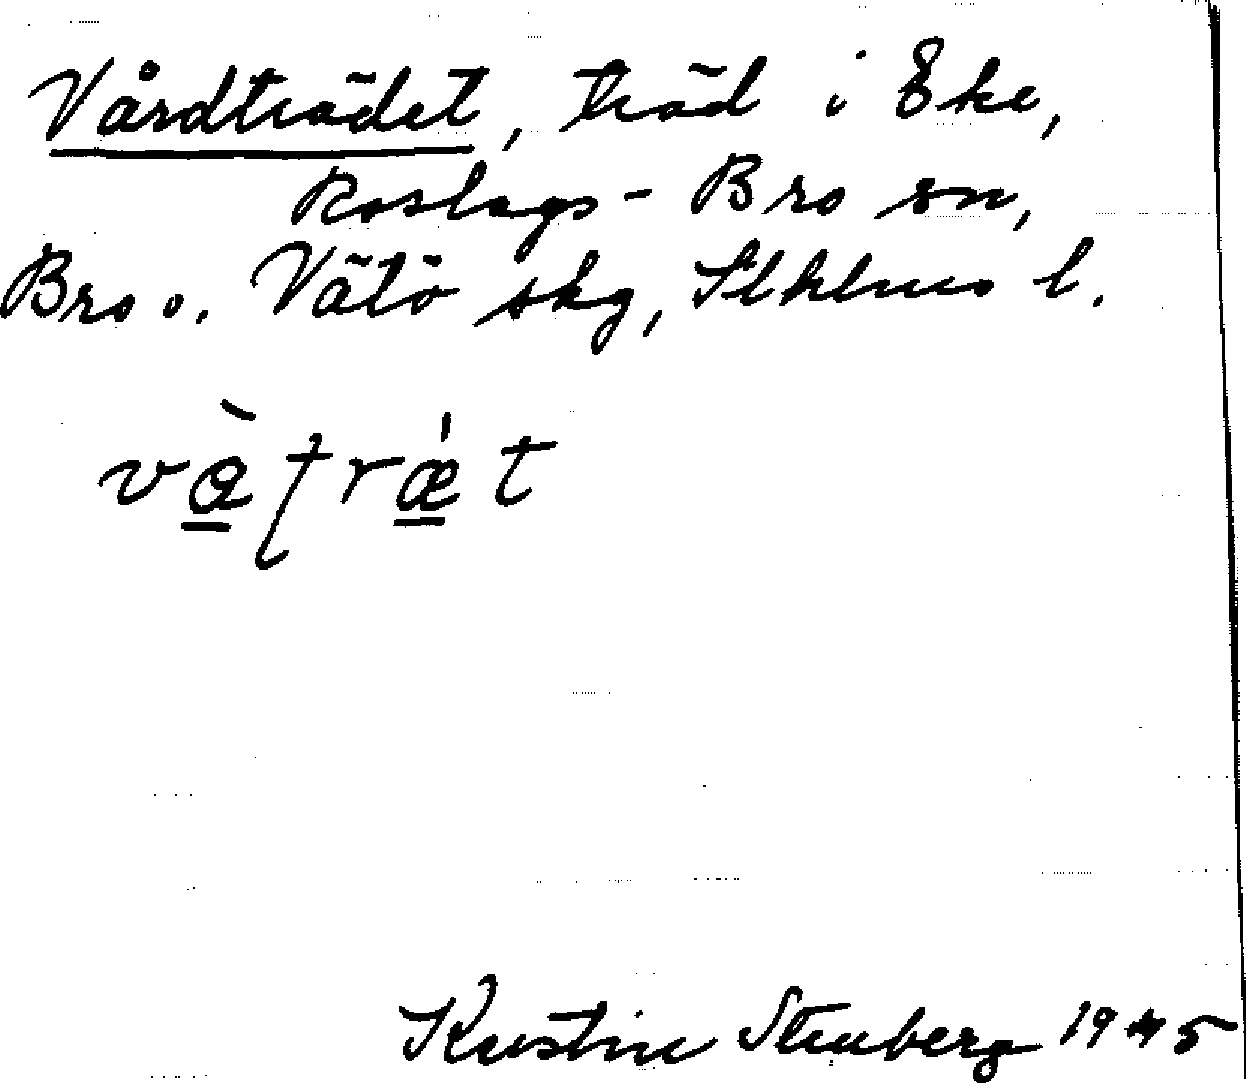 Vårdträdet, träd i Eke,
Roslags-Bro sn,
Bro o. Vätö skg, Sthlms l.
Kerstin Stenberg 1945